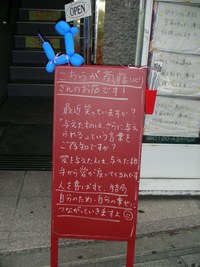 OPEN
こちらが斎藤いい
さんのお店です!
最近笑っていますか?
"与えたものは、さらに与え
られる"という言葉を
ご存知ですか?
愛を与えた人は、与えた相
手から愛が返ってくるんです
人を喜ばすと
自分のため・自分の幸せに
つながっていきますよ